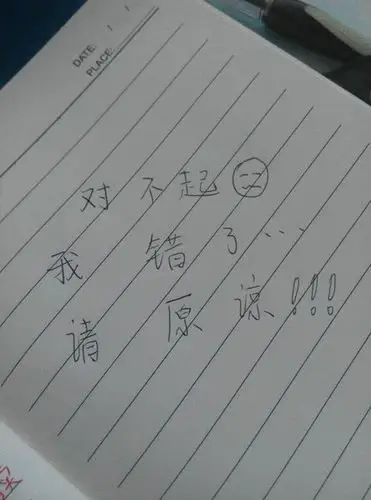 DATE: / /
PLACE:
对不起
我错了...
请原谅!!!